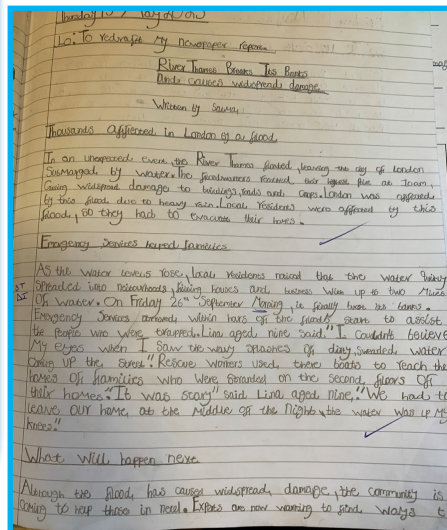 Lo: To redraft My newspaper report.
River Thames Breaks Its Banks
And causes widespread damage
Written by
Thousands affected in London by a flood
In an unexpected event, the River Thames flooded, leaving the city of London
Submarged by water. The floodwaters reached their highest point at 10am,
Causing widspread damage to buildings, roads and cars. London was affected
by this flood due to heavy rain. Local residents were affected by this
flood, so they had to evacuate their homes.
Emergency Services helped families
As the water levels rose, local residents noticed that the water quickly
Spreaded into neibourhoods, filling houses and business With up to two Metres
Of water. On Friday 26th September Morning, it finally burst its banks.
Emergency Services arrived within hours of the flood, start to assist
the people who were trapped. Lina aged nine said, "I couldn't believe
My eyes when I saw the way splashes of dirty, water
Coming up the street." Rescue workers used, there boats to reach the
homes of families who were stranded on the second floors of
their homes. "It was scary" said Lina aged nine, "We had to
leave our home, at the Middle of the Night, the water was up My
knees."
What Will happen next
Although the flood, has caused widspread, damage, the community is
coming to help those in need. Experts are now warning to find ways